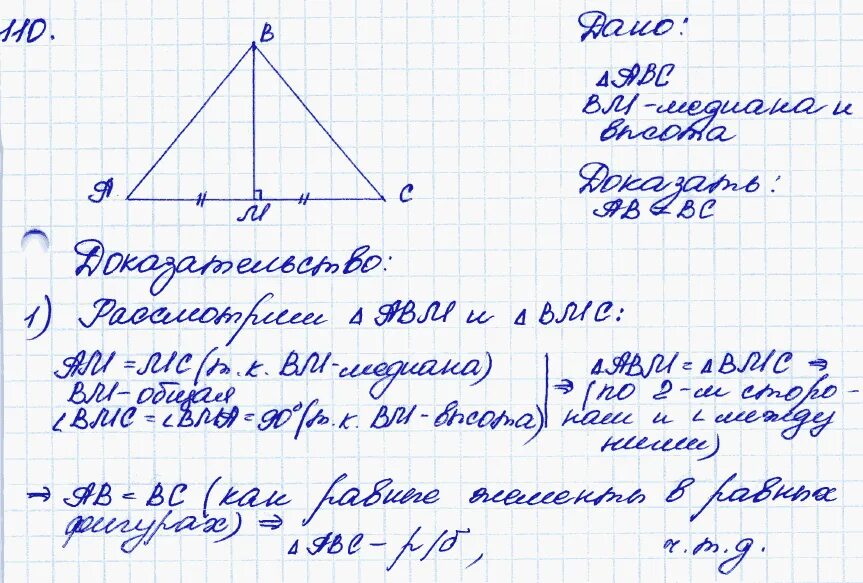 110.
B
A
M
C
Дано:
△ABC
BM-медиана и
высота
Доказать:
AB = BC
Доказательство:
1) Рассмотрим △ABM и △BMC:
AM = MC (т.к. BM-медиана)
BM-общая
∠BMC = ∠BMA = 90° (т.к. BM-высота)
⇒
△ABM = △BMC ⇒
(по 2-м сторо-
нам и ∠ между
ними)
⇒ AB = BC (как равные элементы в равных
фигурах) ⇒
△ABC - р/б,
ч.т.д.